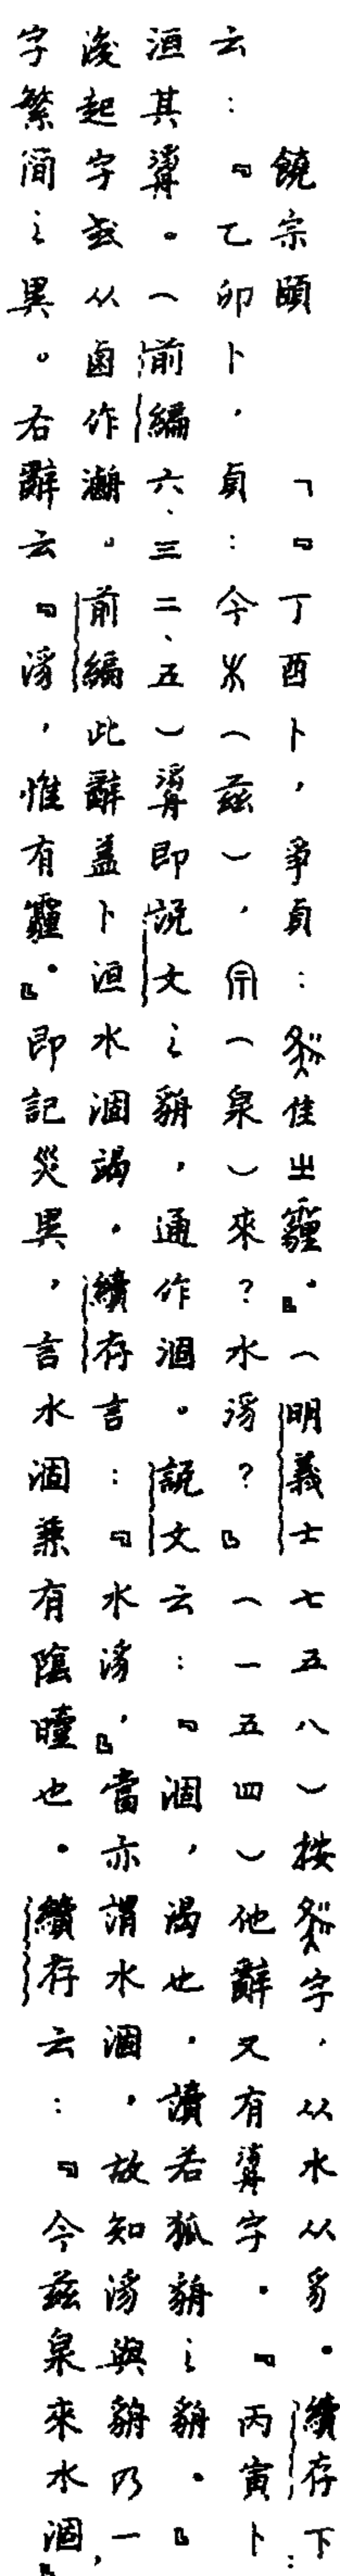 饒宗頤　「『丁酉卜，爭貞：隹㞢霾。』（明義士七五八）按字，从水从豸。續存下：
云：『乙卯卜，貞：今（兹），（泉）來？水㴍？』（一五四）他辭又有字。『丙寅卜
洹其。（前編六、三二、五）即說文之貈，通作涸。說文云：『涸，渴也。讀若狐貈之貈。』
後起字或从鹵作。前編此辭蓋卜洹水涸竭。續存言：『水㴍』，當亦謂水涸，故知㴍與貈乃一
字繁簡之異。右辭云『㴍，惟有霾。』即記災異，言水涸兼有陰曀也。續存云：『今兹泉來水涸，』